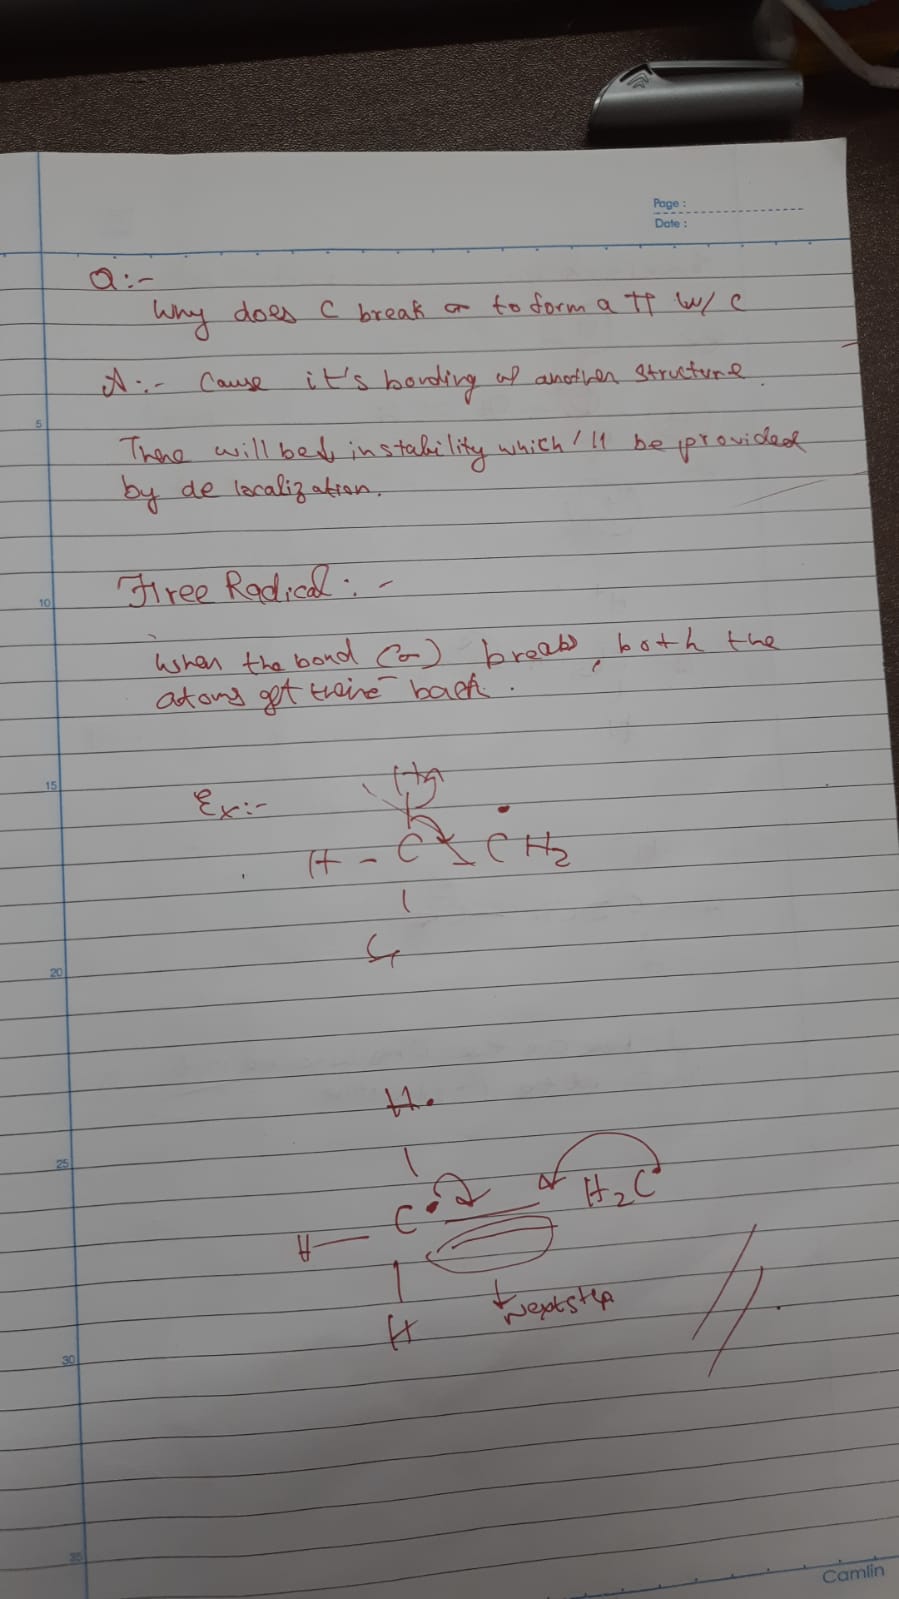 Page :
Date :
Q:-
Why does C break σ to form a π w/ C
A:- Cause it's bonding w/ another structure.
5
There will be instability which'll be provided
by de localization.
Free Radical : -
10
When the bond (σ) breaks, both the
atoms get their e⁻ back.
15
Ex:-
H - C CH2
20
H.
25
C H2C
H
Next step
H
30
35
Camlin